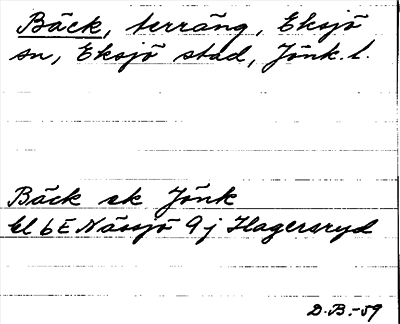 Bäck, terräng, Eksjö
sn, Eksjö stad, Jönk. l.
Bäck sk Jönk
El 6E Nässjö 9j Hagersryd
D.B.-59